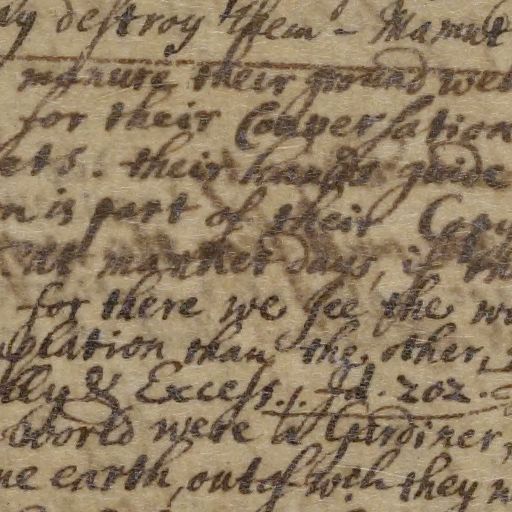 destroy them - Manut
manure their ground
for their Conversation
ets. their hands guide
is part of their
market days, if
for there we see the
plation than the other,
lly & Excess. Id. 202.
world were a Gardiner,
ne earth, out of wch they